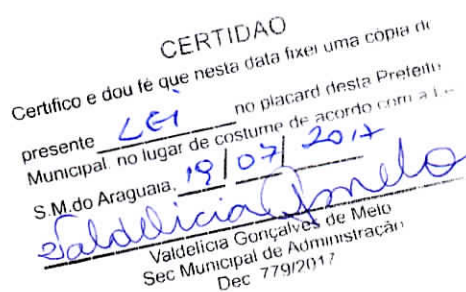 CERTIDAO
Certifico e dou fé que nesta data fixei uma cópia de
presente LEI no placard desta Prefeitu
Municipal, no lugar de costume de acordo com a
S.M.do Araguaia, 19/07/2017
Valdelicia Gmelo
Valdelícia Gonçalves de Melo
Sec Municipal de Administração
Dec 779/2017